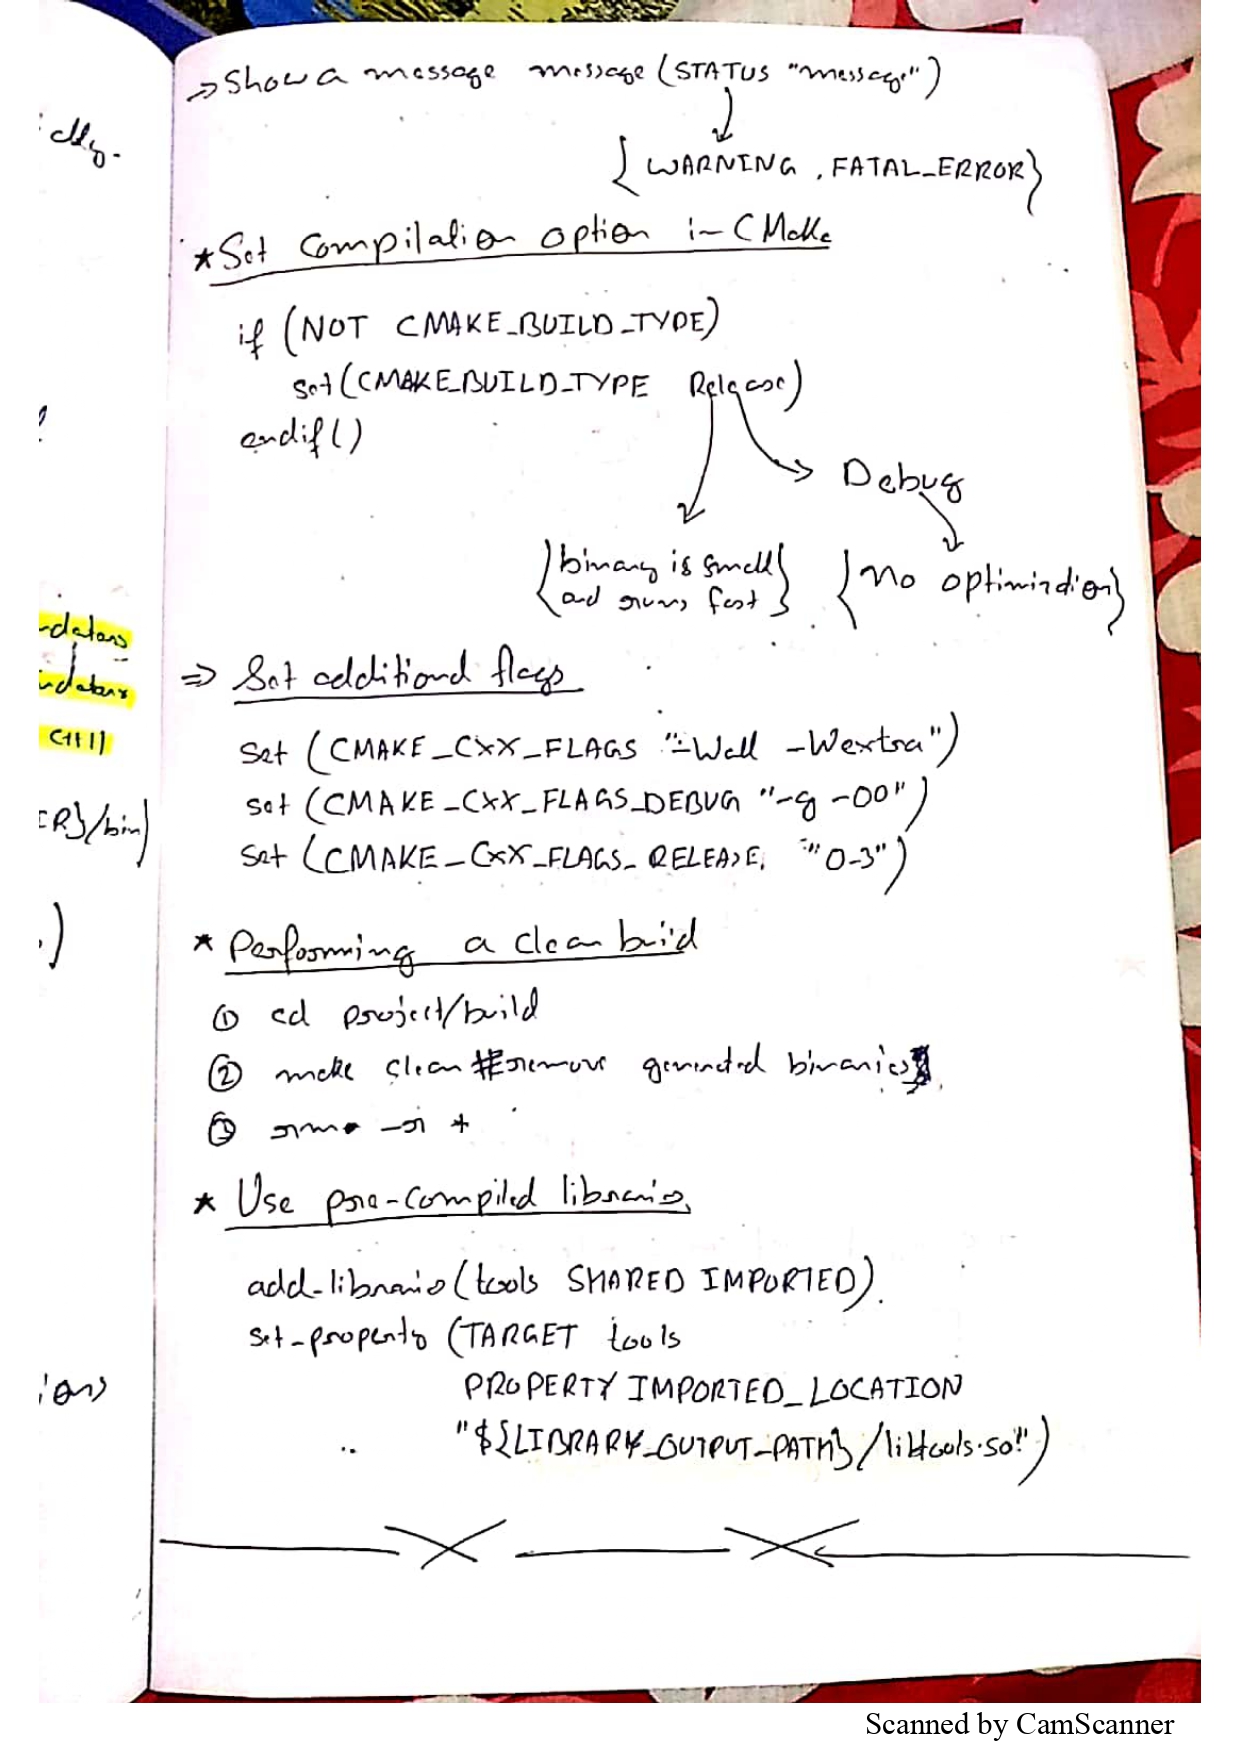 ⇒ Show a message message (STATUS "message")
{WARNING, FATAL_ERROR}
* Set Compilation option in CMake
if (NOT CMAKE_BUILD_TYPE)
set (CMAKE_BUILD_TYPE Release)
endif()
Debug
{binary is small
and runs fast}
{No optimization}
⇒ Set additional flags
set (CMAKE_CXX_FLAGS "-Wall -Wextra")
set (CMAKE_CXX_FLAGS_DEBUG "-g -O0")
set (CMAKE_CXX_FLAGS_RELEASE "O-3")
* Performing a clean build
① cd project/build
② make clean #remove generated binaries
③ rm -r *
* Use pre-compiled libraries
add-libraris (tools SHARED IMPORTED).
set-property (TARGET tools
PROPERTY IMPORTED_LOCATION
"${LIBRARY_OUTPUT_PATH}/libtools.so")
C++11
ER}/bin)
ions
Scanned by CamScanner